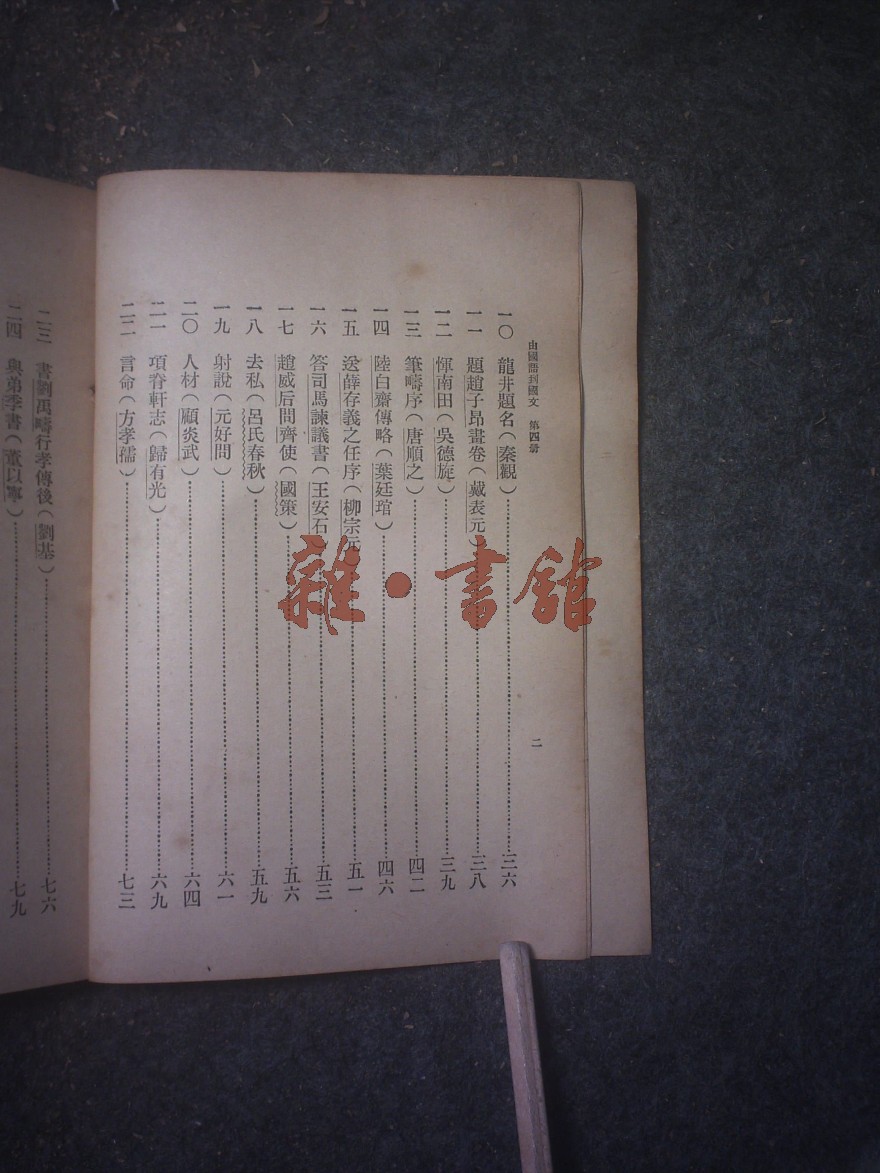 由國語到國文 第四册
二
一〇 龍井題名(秦觀)……三六
一一 題趙子昂畫卷(戴表元)……三八
一二 惲南田(吳德旋)……三九
一三 筆疇序(唐順之)……四二
一四 陸白齋傳略(葉廷琯)……四六
一五 送薛存義之任序(柳宗元……五一
一六 答司馬諫議書(王安石)……五三
一七 趙威后問齊使(國策)……五六
一八 去私(呂氏春秋)……五九
一九 射說(元好問)……六一
二〇 人材(顧炎武)……六四
二一 項脊軒志(歸有光)……六九
二二 言命(方孝孺)……七三
二三 書劉禹疇行孝傳後(劉基)……七六
二四 與弟季書(董以寧)……七九
雜·書館